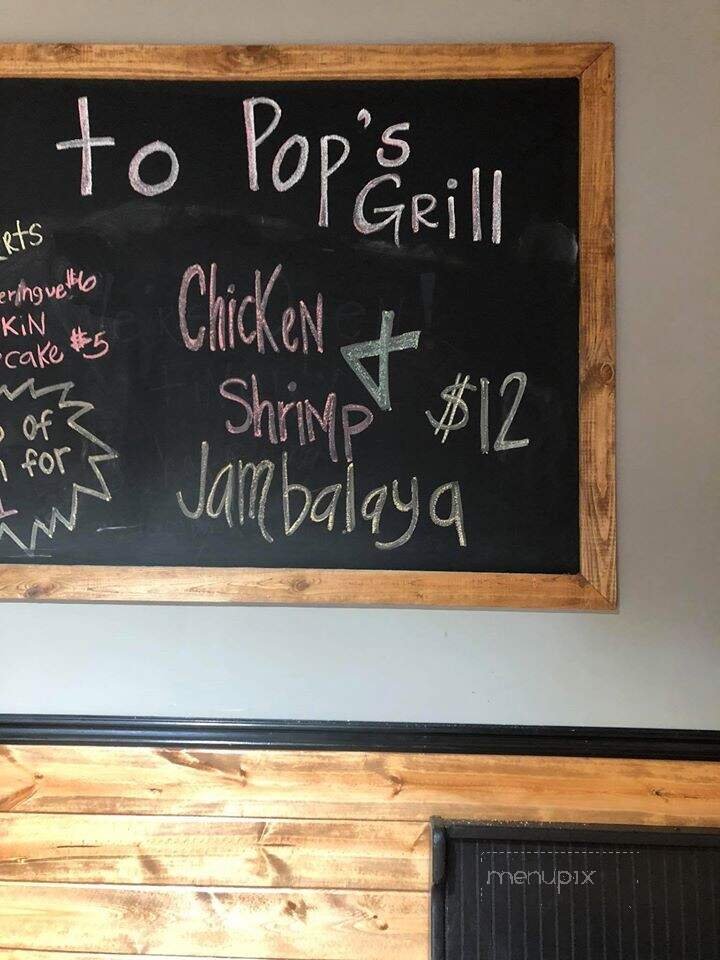 to Pop's
Grill
Chicken &
Shrimp $12
Jambalaya
#6
KiN
cake #5
of
for
menupix